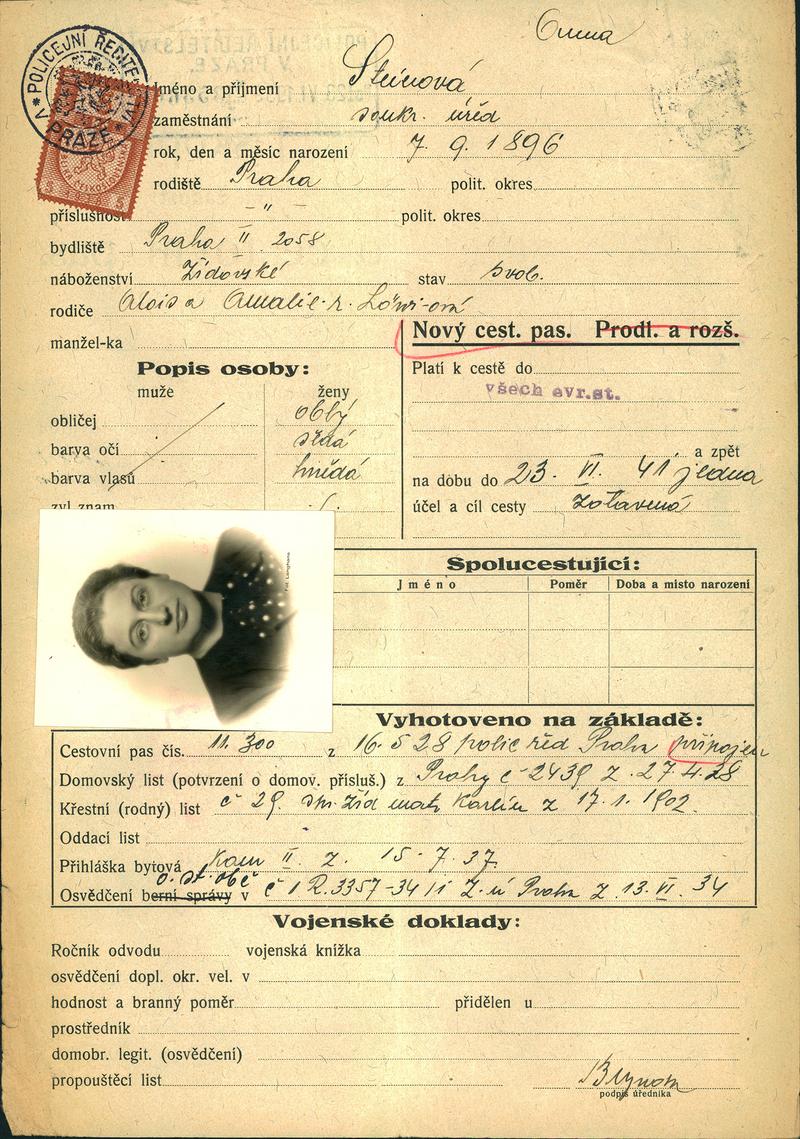 POLICEJNÍ ŘEDITELSTVÍ * V PRAZE *
Jméno a příjmení Steinová
zaměstnání soukr. úřed
rok, den a měsíc narození 7. 9. 1896
rodiště Praha polit. okres
příslušnost -"- polit. okres
bydliště Praha II 2058
náboženství židovské stav svob.
rodiče Alois a Amalie r. Löwi-ová
manžel-ka
Nový cest. pas. Prodl. a rozš.
Popis osoby:
muže ženy
obličej oblý
barva očí šedá
barva vlasů hnědá
zvl. znam.
Platí k cestě do
všech evr.st.
a zpět
na dobu do 23. VI. 41 jedna
účel a cíl cesty zotavená
Fot. Langhans
Spolucestující:
Jméno Poměr Doba a místo narození
Vyhotoveno na základě:
Cestovní pas čís. 11.300 z 16.5 28 polic řed Praha připojen
Domovský list (potvrzení o domov. přísluš.) z Prahy č-2439 z. 27.4.28
Křestní (rodný) list č 29. žid matr Karlín z 17.1.1902.
Oddací list
Přihláška bytová Kom II. z. 15-7.37.
o. st. obč
Osvědčení berní správy v č 1 R.3357-34/1 Z. ú Praha z. 13. VI. 34
Vojenské doklady:
Ročník odvodu vojenská knížka
osvědčení dopl. okr. vel. v
hodnost a branný poměr přidělen u
prostředník
domobr. legit. (osvědčení)
propouštěcí list
podpis úředníka